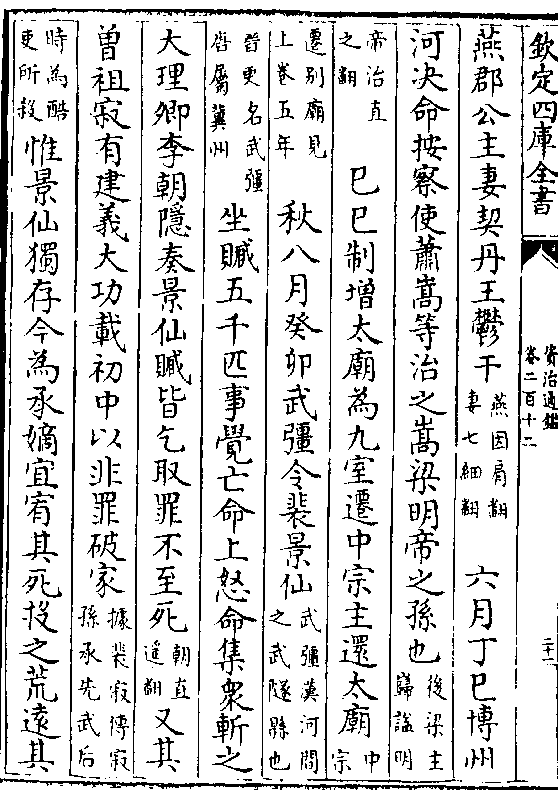 欽定四庫全書
資治通鑑
卷二百十二
二十二
燕郡公主妻契丹王鬱干燕因肩翻妻七細翻 六月丁巳博州
河决命按察使蕭嵩等治之嵩梁明帝之孫也後梁主歸諡明
帝治直之翻 己巳制增太廟為九室遷中宗主還太廟中宗
遷别廟見上卷五年 秋八月癸卯武彊令裴景仙武彊漢河間之武隧縣也
晉更名武彊唐屬冀州坐贓五千匹事覺亡命上怒命集衆斬之
大理卿李朝隱奏景仙贓皆乞取罪不至死朝直遥翻又其
曽祖寂有建義大功載初中以非罪破家據裴寂傳寂孫承先武后
時為酷吏所殺惟景仙獨存今為承嫡宜宥其死投之荒遠其